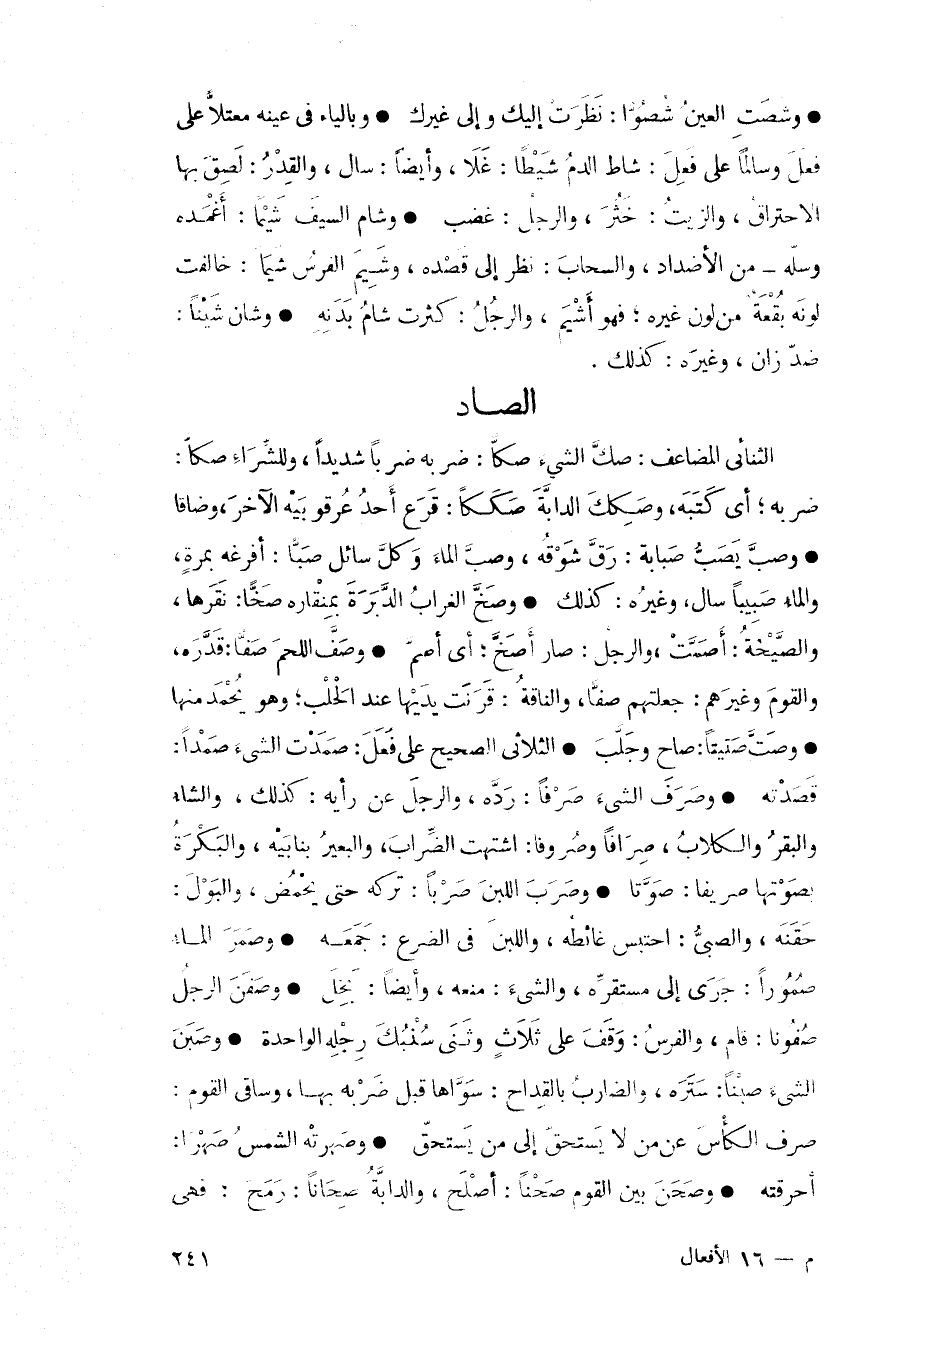 ● وشصَتِ العينُ شُصُوًّا : نَظَرَتْ إليك وإلى غيرك ● وبالياء فى عينه معتلاًّ على
فعلَ وسالمًا على فَعِلَ : شاط الدمُ شَيْطًا : غَلَا ، وأيضاً : سال ، والقِدْرُ : لَصِقَ بها
الاحتراقُ ، والزيتُ : خَثُرَ ، والرجلُ : غضب ● وشام السيفَ شَيْمًا : أَغْمَده
وسلّه – من الأضداد ، والسحابَ : نظر إلى قصْده ، وشَيِمَ الفرسُ شيَمًا : خالفت
لونَه بُقْعَةٌ من لون غيره ؛ فهو أَشْيَم ، والرجُلُ : كثرت شامُ بَدَنِهِ ● وشان شَيْناً :
ضدّ زان ، وغيرَه : كذلك .
الصـاد
الثنائى المضاعف : صكَّ الشىءَ صكًّا : ضربه ضرباً شديداً ، وللشِّرَاءِ صكاًّ :
ضربه ؛ أى كَتَبَه، وصَكِكَ الدابَّةُ صَكَكاً : قَرَع أَحدُ عُرقوبَيْه الآخرَ، وضاقا
● وصبَّ يَصَبُّ صَبابة : رَقَّ شَوْقُه ، وصبَّ الماءَ وَكلَّ سائل صَبًّا : أفرغه بمرةٍ،
والماءُ صَبِيباً سال، وغيرُه : كذلك ● وصخَّ الغرابُ الدَّبَرَةَ بمِنْقاره صَخًّا: نَقَرَها ،
والصَّيْحَةُ : أَصَمَّتْ ، والرجلُ : صار أَصَخَّ ؛ أى أصمّ ● وصَفَّ اللحمَ صَفًّا: قَدَّرَه،
والقومَ وغيرَهم : جعلتهم صفًّا، والناقةُ : قَرَنَت يدَيْها عند الحَلْب؛ وهو يُحْمَد منها
● وصَتَّ صَتيتاً: صاح وجَلَّبَ ● الثلاثى الصحيح على فَعَلَ: صمَدْت الشىءَ صَمْداً:
قَصَدْته ● وصَرَفَ الشىءَ صَرْفاً : رَدَّه ، والرجلَ عن رأيه : كذلك ، والشاءُ
والبقرُ والـكلابُ ، صِرَافًا وصُروفا: اشتهت الضِّرابَ، والبعيرُ بنابَيْه ، والبَكْرَةُ
بصَوْتها صريفا : صَوَّتا ● وصَرَبَ اللبنَ صَرْباً : تركه حتى يَحْمُض ، والبَوْلَ :
حَقَنَه ، والصبىُّ : احتبس غائطُه ، واللبنَ فى الضرع : جَمَعَــه ● وصَمَرَ المـاءُ
صُمُوراً : جَرَى إلى مستقرِّه ، والشىءَ : منعه ، وأيضاً : بَخِل ● وصَفَنَ الرجلُ
صُفُونا : قام ، والفرسُ : وَقَفَ على ثَلَاثٍ وثَـنَى سُنْبُكَ رِجْلِه الواحدة ● وصَبَنَ
الشىءَ صبْناً : سَتَرَه ، والضاربُ بالقِداح : سَوَّاها قبل ضَرْبه بهـا ، وساقى القوم :
صرف الـكأسَ عن من لا يَستحقّ إلى من يَستحقّ ● وصَهرتْه الشمسُ صَهْرًا :
أحرقته ● وصَحَنَ بين القوم صَحْناً : أصْلَح ، والدابَّةُ صِحَاناً : رَمَحَ : فهى
م — ١٦ الأفعال ٢٤١